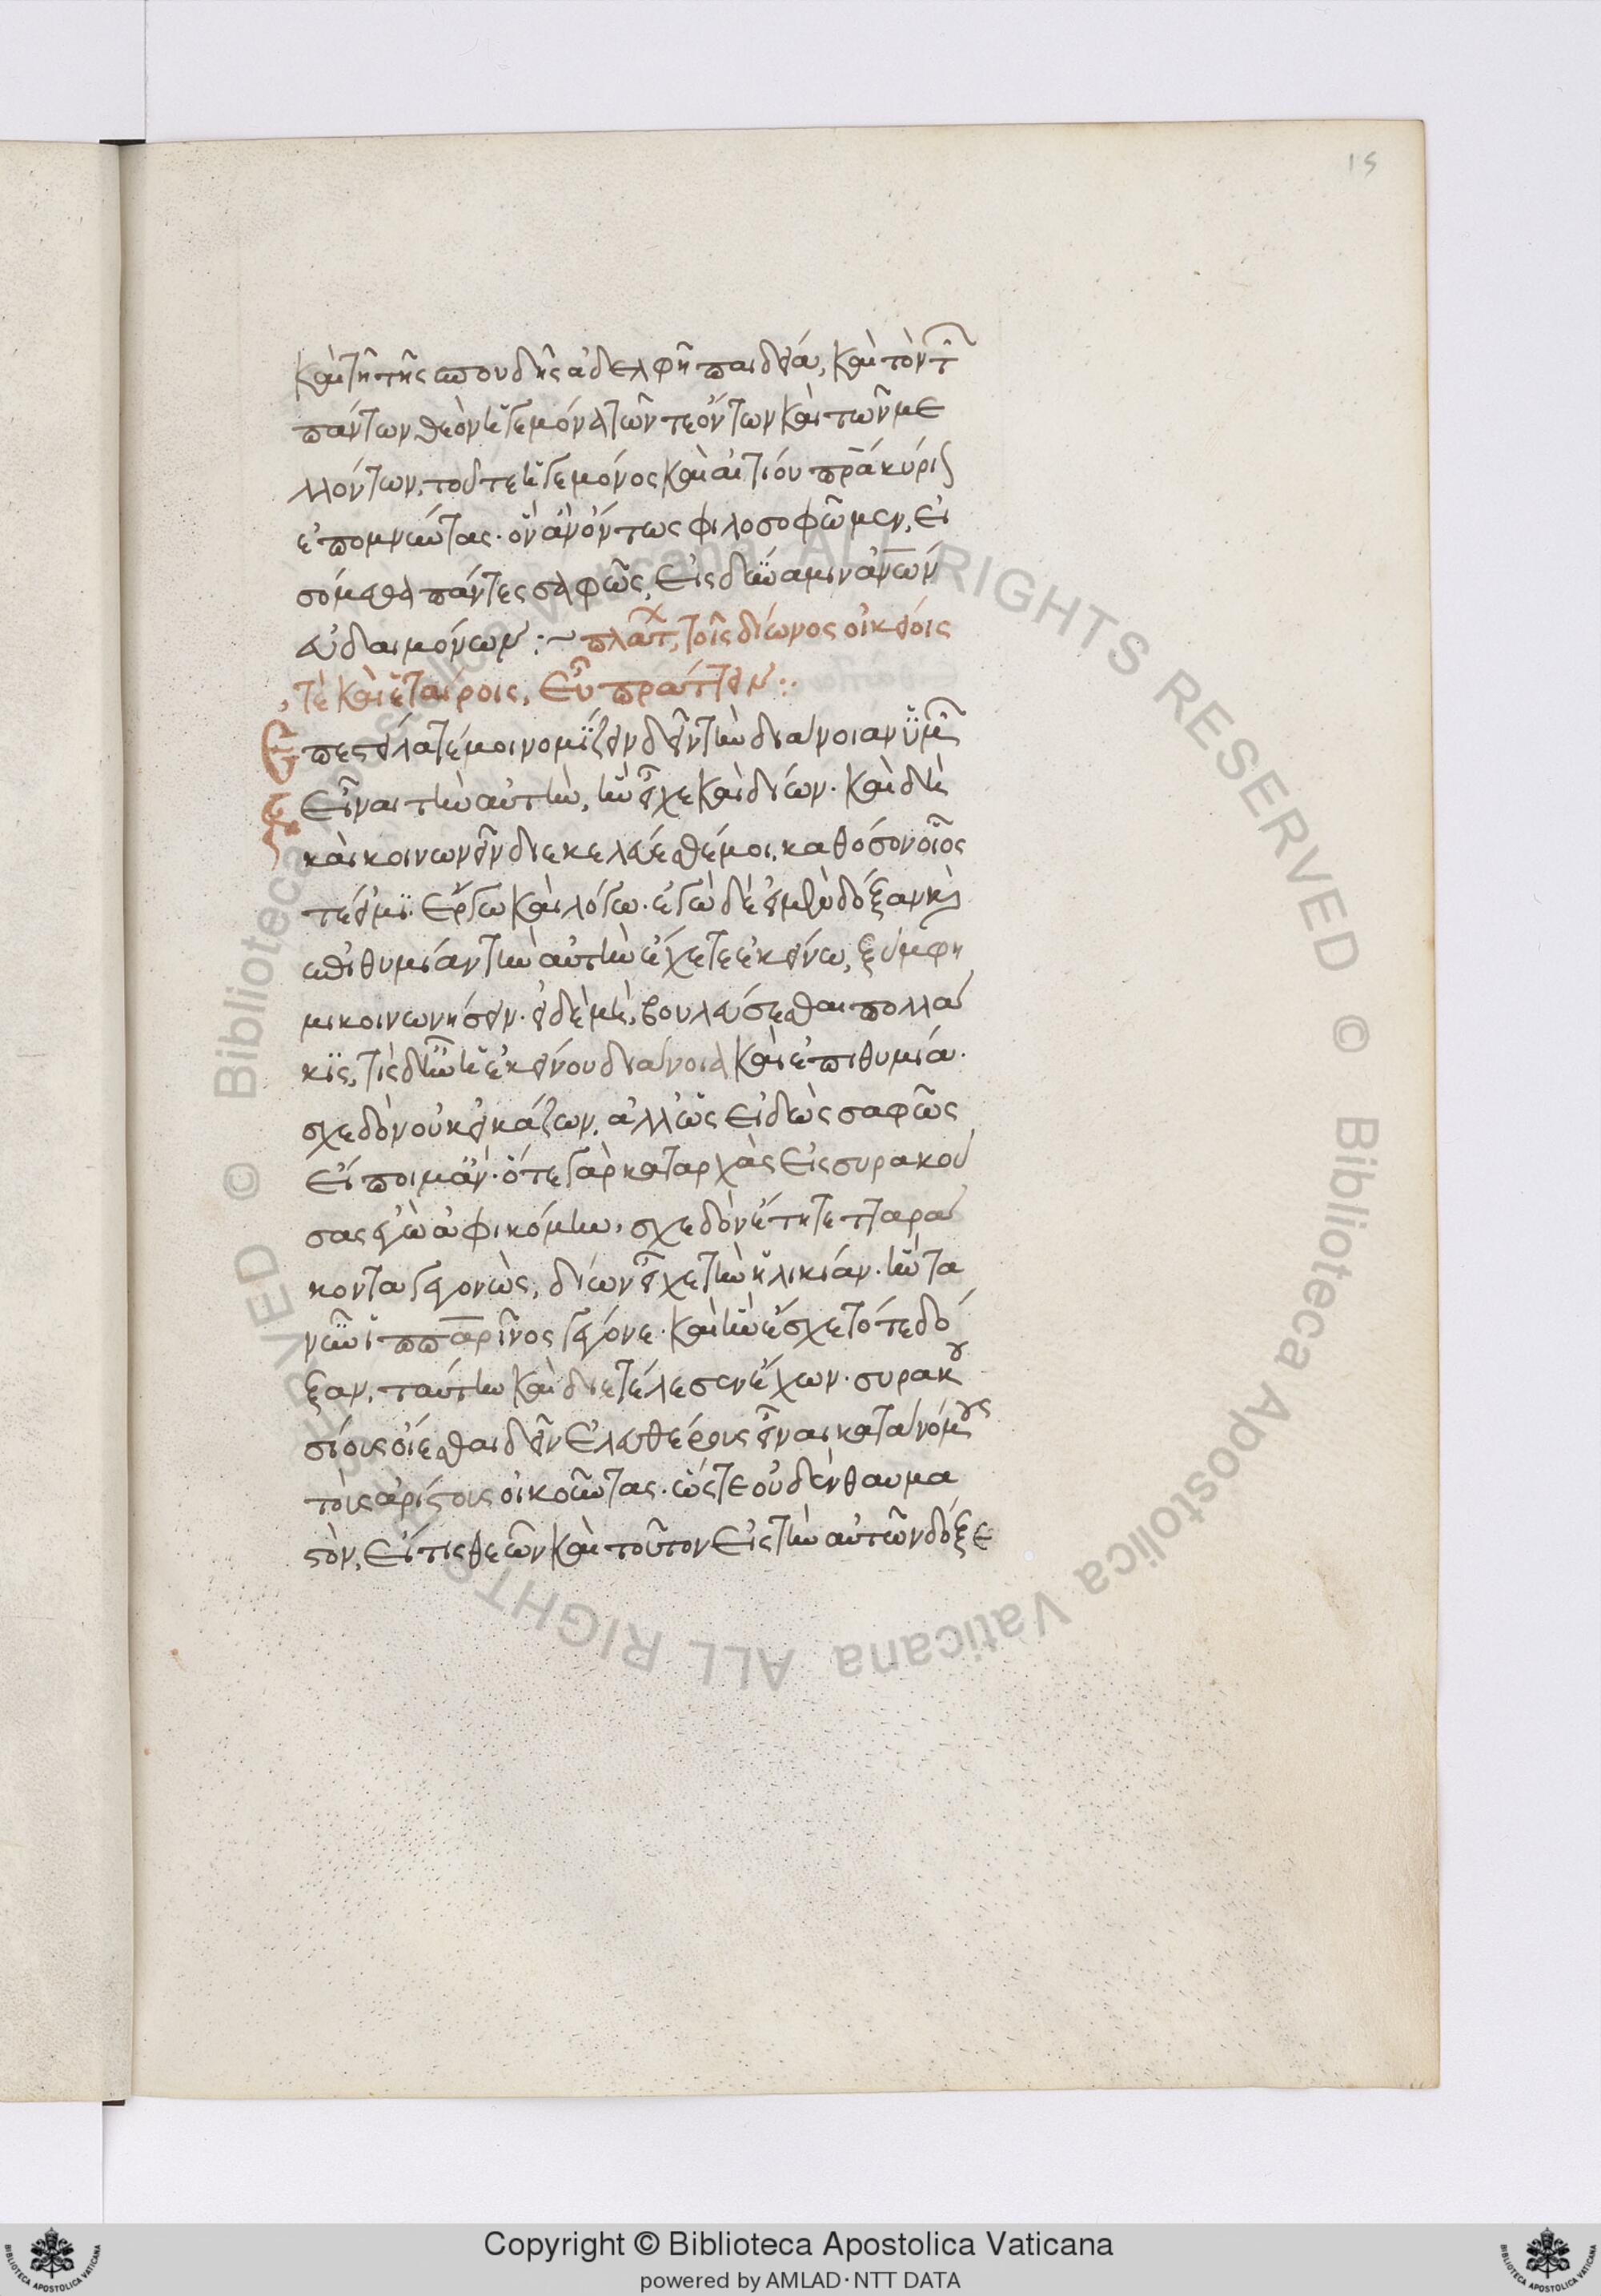 15
καὶ τῆ τῆς σπουδῆς ἀδελφῆ παιδεία, καὶ τὸν τῶν
πάντων θεὸν ἡγεμόνα τῶν τε ὄντων καὶ τῶν με
λλόντων, τοῦ τε ἡγεμόνος καὶ αἰτίου πρα κύριον
ἐπομνύντας. ὃν ἂν ὄντως φιλοσοφῶμεν, εἰ
σόμεθα πάντες σαφῶς, εἰς δύναμιν ἀνων
εὐδαιμόνων :~ πλατ, τοῖς δίωνος οἰκείοις
τὲ καὶ ἑταίροις, εὖ πράττειν :·
Ἐπεστείλατέ μοι νομίζειν δεῖν τὴν διάνοιαν ὑμῶν
εἶναι τὴν αὐτὴν, ἣν εἶχε καὶ δίων. καὶ δὴ
καὶ κοινωνεῖν διεκελεύεσθέ μοι, καθόσον οἷός
τέ εἰμι ἔργω καὶ λόγω. ἐγὼ δὲ εἰ μὲν δόξαν καὶ
ἐπιθυμίαν τὴν αὐτὴν ἔχετε ἐκείνω, ξύμφη
μι κοινωνήσειν. εἰ δὲ μὴ, βουλεύσεσθαι πολλά
κις, τίς δ' ἦν ἡ ἐκείνου διάνοια καὶ ἐπιθυμία.
σχεδὸν οὐκ εἰκάζων, ἀλλ' ὡς εἰδὼς σαφῶς
εἴποιμ' ἄν. ὅτε γὰρ καταρχὰς εἰς συρακού
σας ἐγὼ ἀφικόμην, σχεδὸν ἔτη τετταρά
κοντα γεγονὼς, δίων εἶχε τὴν ἡλικίαν. ἣν τὰ
νῦν ἱππαρῖνος γέγονε. καὶ ἣν ἔσχε τότε δό
ξαν, ταύτην καὶ διετέλεσεν ἔχων. συρακου
σίους οἴεσθαι δεῖν ἐλευθέρους εἶναι κατὰ νόμους
τοὺς ἀρίστους οἰκοῦντας. ὥστε οὐδὲν θαυμα
στὸν, εἴ τις θεῶν καὶ τοῦτον εἰς τὴν αὐτῶν δόξε
Copyright © Biblioteca Apostolica Vaticana
powered by AMLAD·NTT DATA